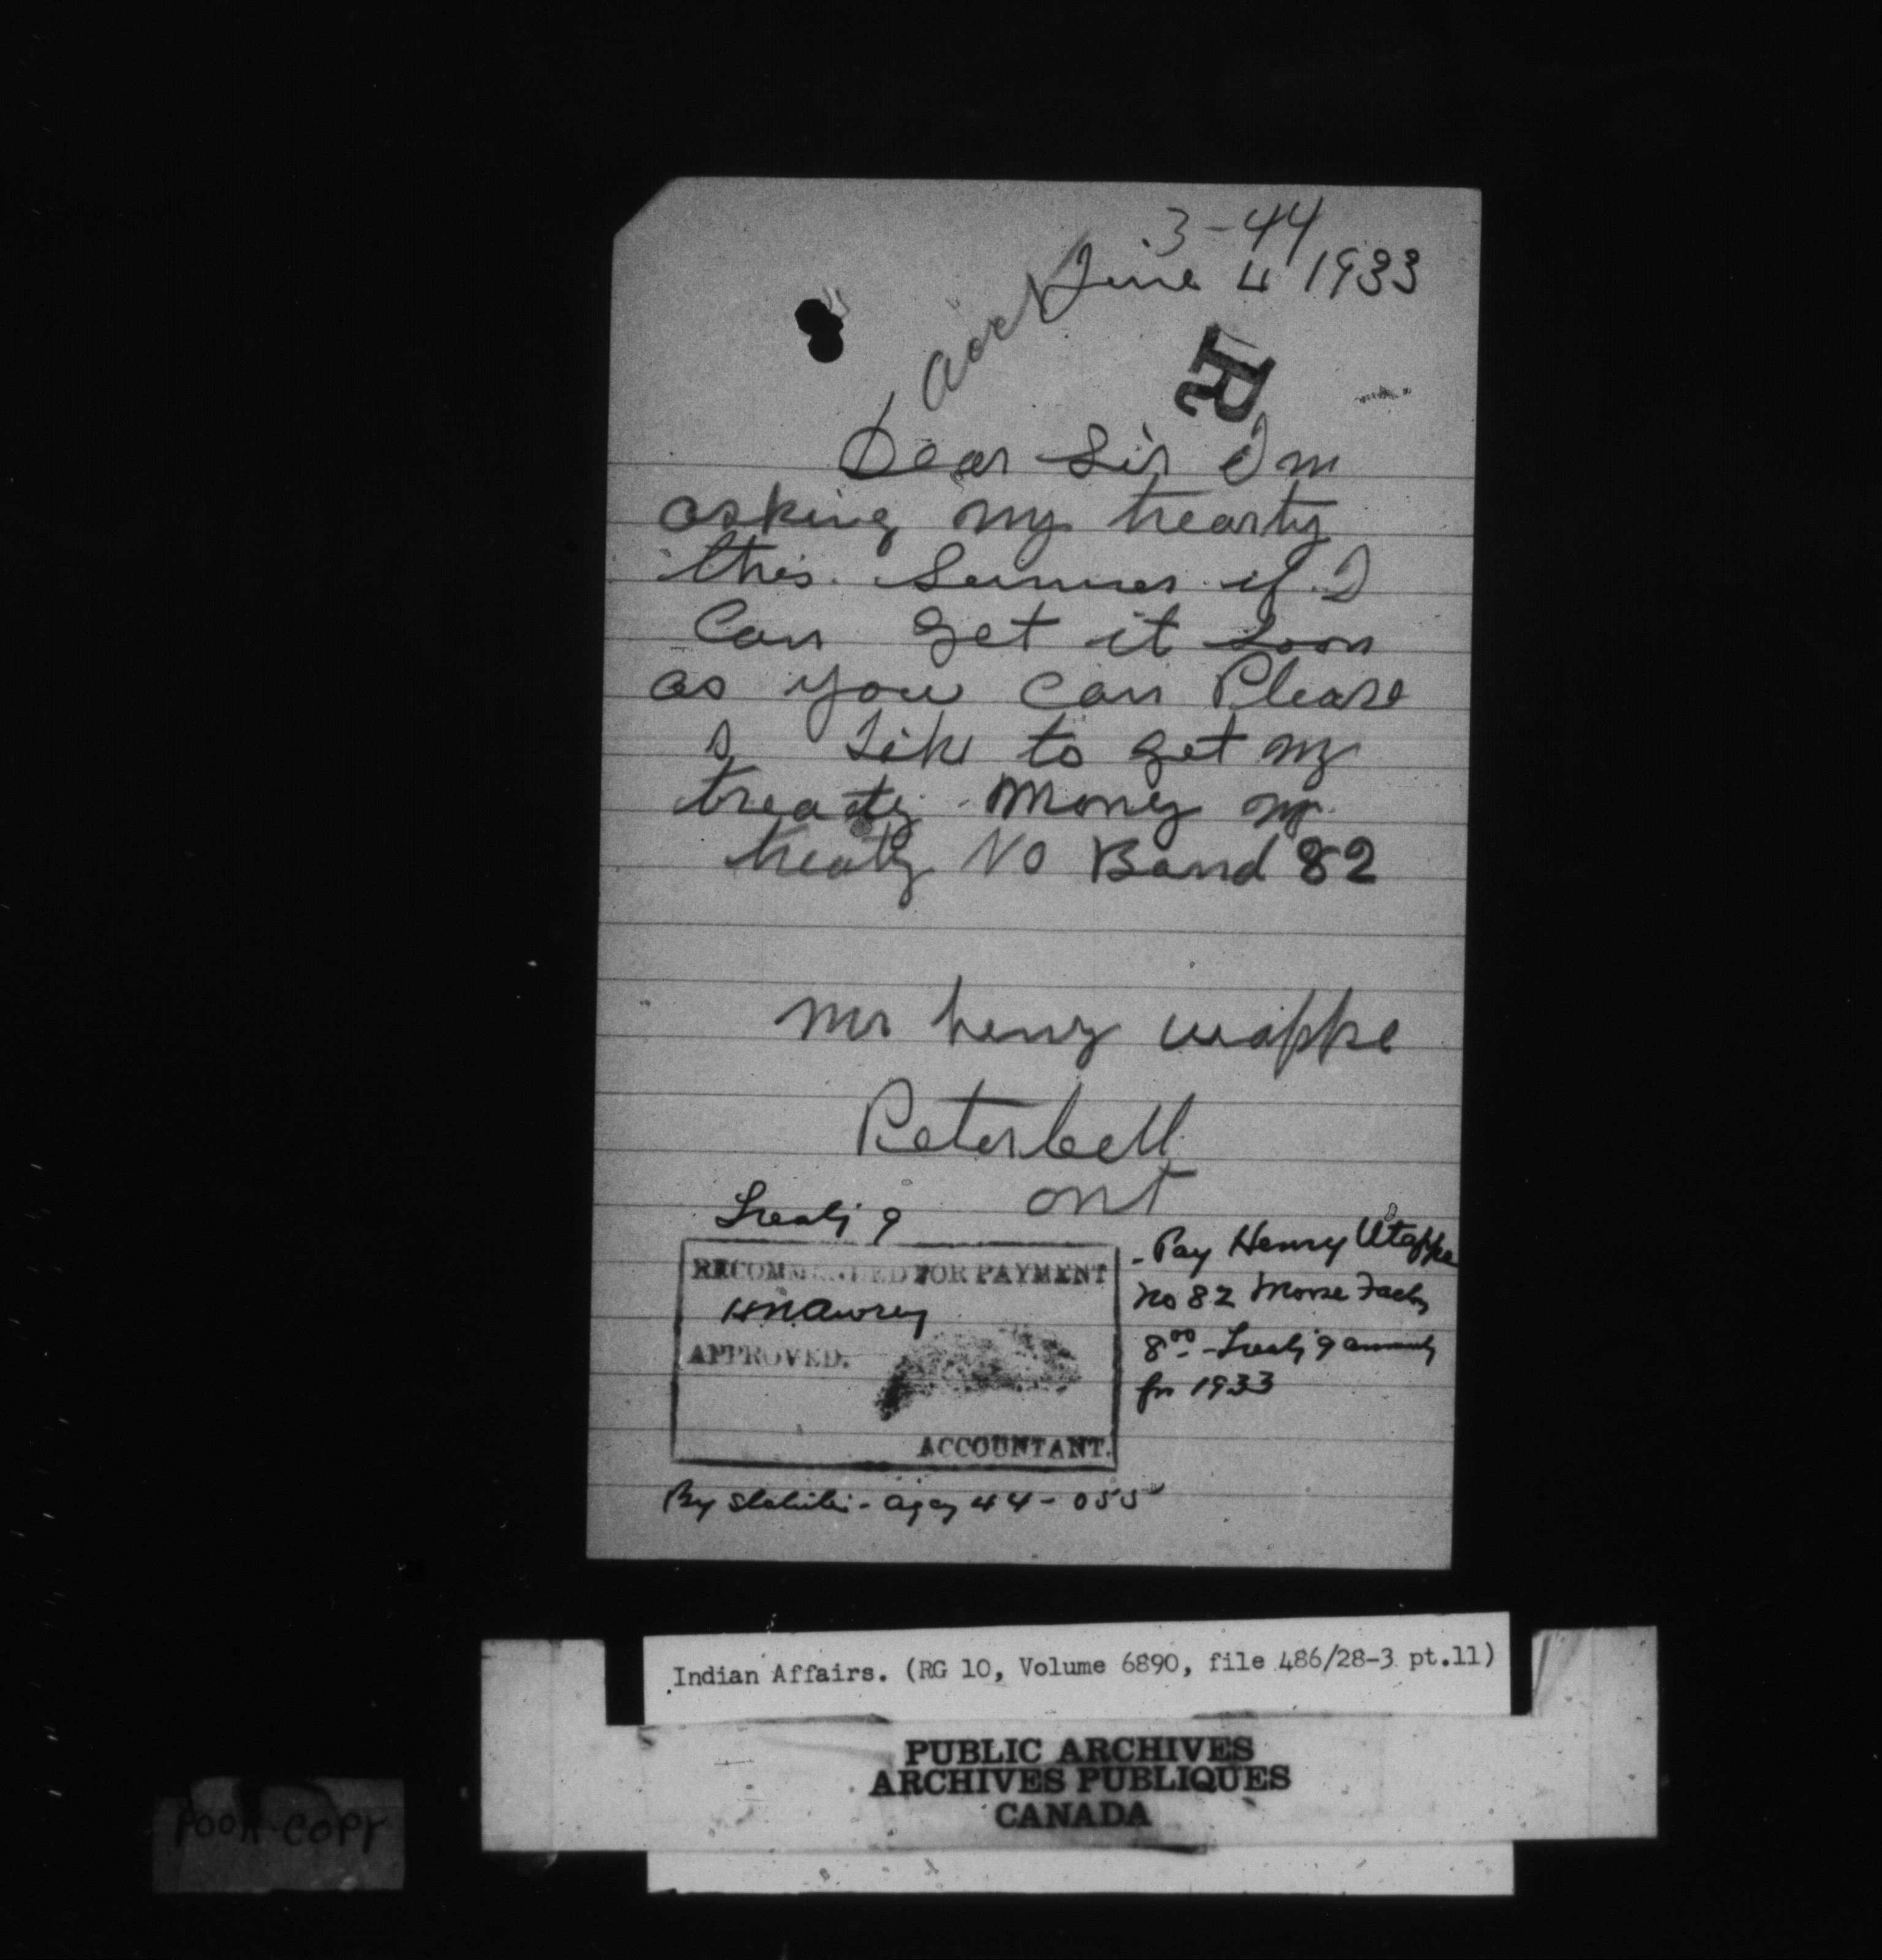 3-44
June 4 1933
R
Dear Sir I m
asking my trearty
this Summer if I
Can get it Soon
as you can Please
I Like to get my
treaty Money my
treaty No Band 82
mr henry wappe
Peterbell
ont
Treaty 9
RECOMMENDED FOR PAYMENT
HN Awrey
APPROVED.
ACCOUNTANT.
- Pay Henry Utappe
No 82 Moose Facty
8⁰⁰ - Treaty 9 annuity
for 1933
By - agcy 44 - 055
Indian Affairs. (RG 10, Volume 6890, file 486/28-3 pt.11)
PUBLIC ARCHIVES
ARCHIVES PUBLIQUES
CANADA
POOR COPY